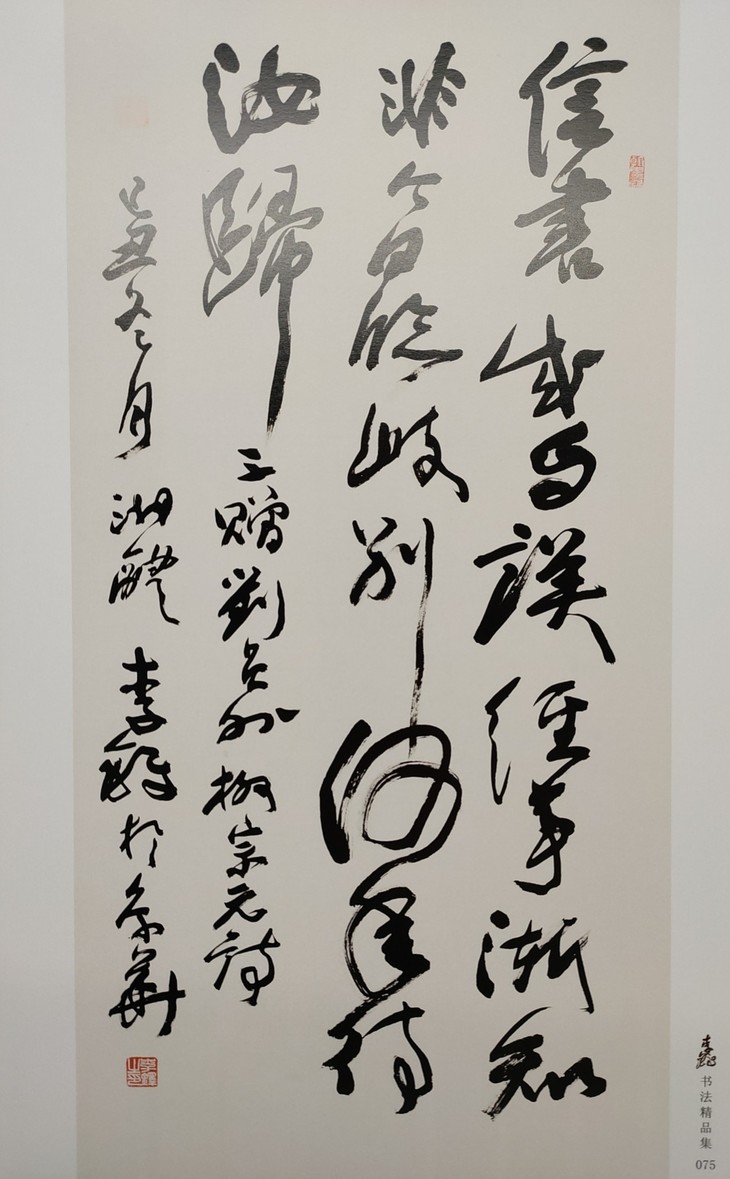 信書成自誤經事漸知
非今日臨岐別何年待
汝歸 三贈劉員外柳宗元詩
己丑冬月湘醴李鐸於京華
李鐸书法精品集
075